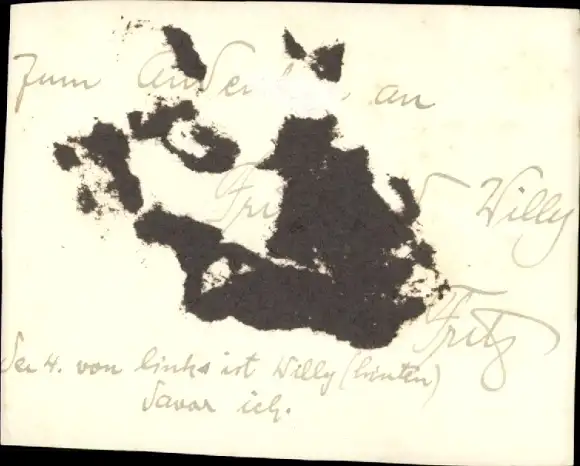 Zum Andenken an
Fritz und Willy
Fritz
Der 4. von links ist Willy (hinten)
davor ich.